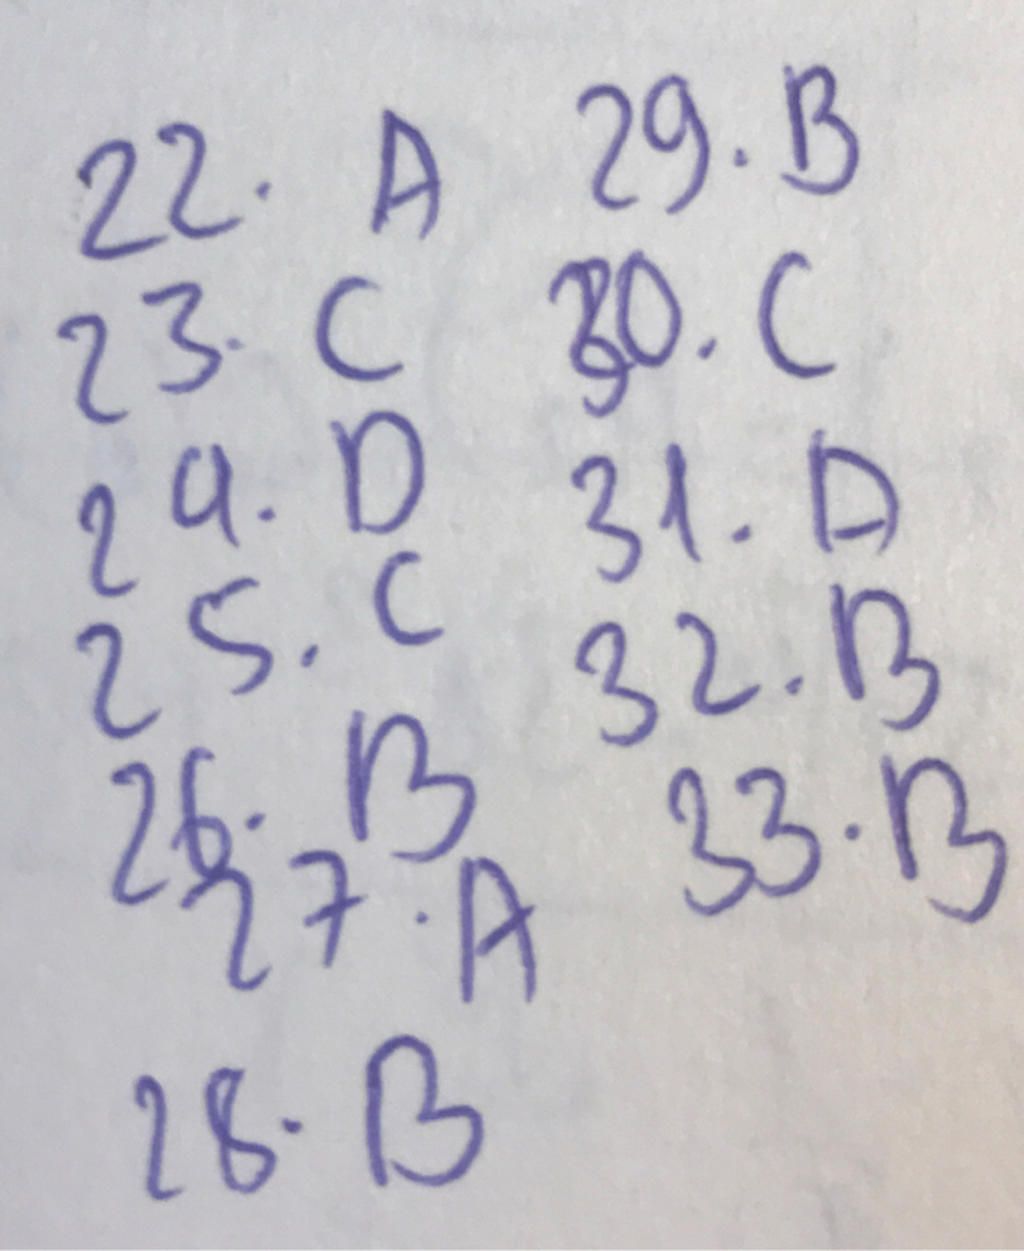 22. A
23. C
24. D
25. C
26. B
27. A
28. B
29. B
30. C
31. A
32. B
33. B